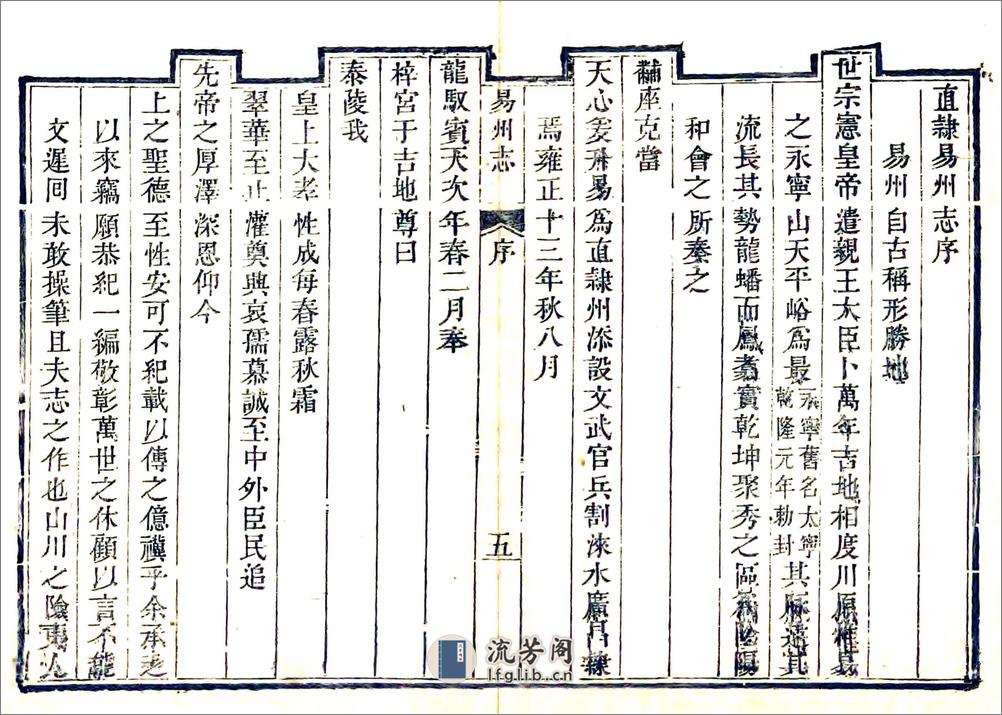 直隸易州志序
易州自古稱形勝地
世宗憲皇帝遣親王大臣卜萬年吉地相度川原惟易
之永寧山天平峪爲最永寧舊名太寧乾隆元年勅封其脈遠其
流長其勢龍蟠而鳳翥實乾坤聚秀之區爲陰陽
和會之所奏之
黼座克當
天心爰升易爲直隸州添設文武官兵割淶水廣昌隸
焉雍正十三年秋八月
易州志 序 五
龍馭賓天次年春二月奉
梓宮于吉地尊曰
泰陵我
皇上大孝性成每春露秋霜
翠華至止灌奠興哀孺慕誠至中外臣民追
先帝之厚澤深恩仰今
上之聖德至性安可不紀載以傳之億禩乎余承乏
以來竊願恭紀一編敬彰萬世之休顧以言不能
文遲回未敢操筆且夫志之作也山川之險夷人
流芳阁
lfglib.cn